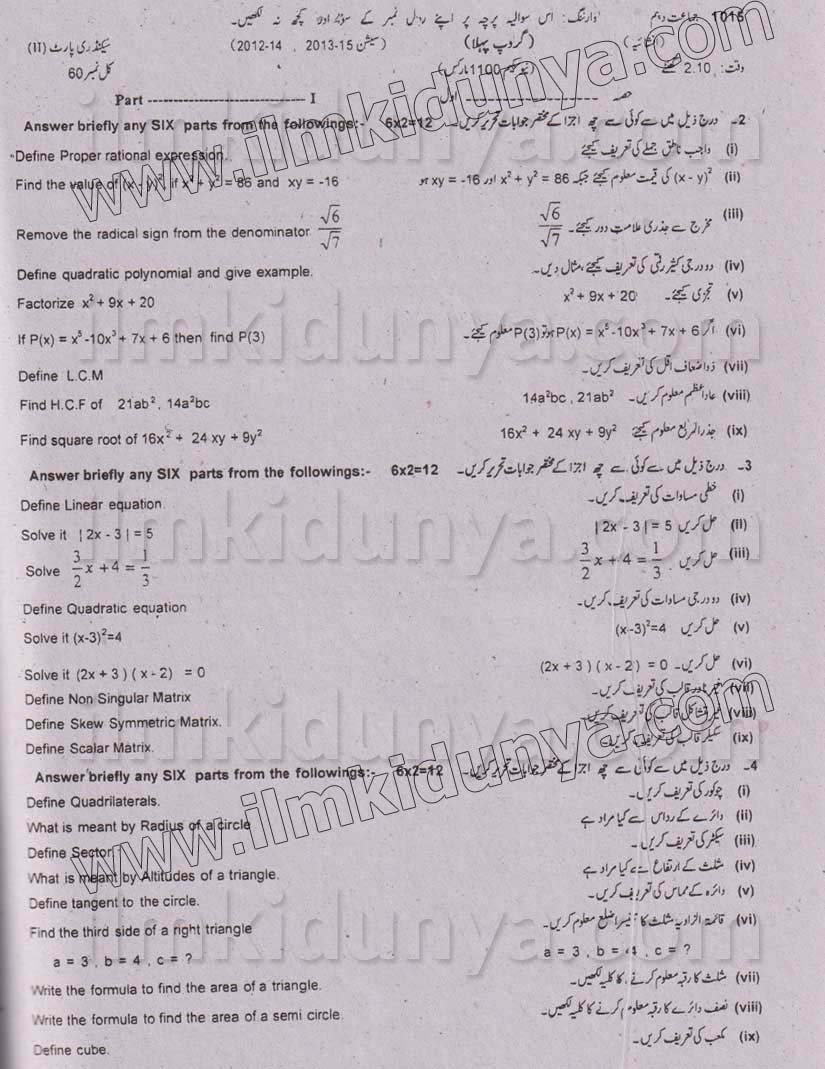 1015 جماعت دہم وارننگ: اس سوالیہ پرچہ پر اپنے رول نمبر کے سوا اور کچھ نہ لکھیں۔
(انشائیہ) (گروپ پہلا) (سیشن 15-2013 , 14-2012) سیکنڈری پارٹ (II)
وقت: 2.10 گھنٹے (نیو سکیم 1100 مارکس) کل نمبر 60
Part ---------------------------- I حصہ ---------------------------- اول
Answer briefly any SIX parts from the followings:- 6x2=12 2۔ درج ذیل میں سے کوئی سے چھ اجزا کے مختصر جوابات تحریر کریں۔
Define Proper rational expression. (i) واجب ناطق جملے کی تعریف کیجئے
Find the value of (x - y)², if x² + y² = 86 and xy = -16 (ii) (x - y)² کی قیمت معلوم کیجئے جبکہ x² + y² = 86 اور xy = -16 ہو
Remove the radical sign from the denominator √6/√7 (iii) مخرج سے جذری علامت دور کیجئے۔ √6/√7
Define quadratic polynomial and give example. (iv) دو درجی کثیر رقمی کی تعریف کیجئے، مثال دیں۔
Factorize x² + 9x + 20 (v) تجزی کیجئے۔ x² + 9x + 20
If P(x) = x⁵ -10x³ + 7x + 6 then find P(3) (vi) اگر P(x) = x⁵ -10x³ + 7x + 6 ہو تو P(3) معلوم کیجئے۔
Define L.C.M (vii) ذواضعاف اقل کی تعریف کریں۔
Find H.C.F of 21ab², 14a²bc (viii) عاداعظم معلوم کریں۔ 14a²bc , 21ab²
Find square root of 16x² + 24 xy + 9y² (ix) جذرالمربع معلوم کیجئے 16x² + 24 xy + 9y²
Answer briefly any SIX parts from the followings:- 6x2=12 3۔ درج ذیل میں سے کوئی سے چھ اجزا کے مختصر جوابات تحریر کریں۔
Define Linear equation. (i) خطی مساوات کی تعریف کریں۔
Solve it | 2x - 3 | = 5 (ii) حل کریں | 2x - 3 | = 5
Solve 3/2 x + 4 = 1/3 (iii) حل کریں 3/2 x + 4 = 1/3
Define Quadratic equation (iv) دو درجی مساوات کی تعریف کریں۔
Solve it (x-3)²=4 (v) حل کریں (x-3)²=4
Solve it (2x + 3 ) ( x - 2) = 0 (vi) حل کریں۔ (2x + 3 ) ( x - 2 ) = 0
Define Non Singular Matrix (vii) غیر نادر قالب کی تعریف کریں۔
Define Skew Symmetric Matrix. (viii) قالب کی تعریف کریں۔
Define Scalar Matrix. (ix) سکیلر قالب کی تعریف کریں۔
Answer briefly any SIX parts from the followings:- 6x2=12 4۔ درج ذیل میں سے کوئی سے چھ اجزا کے مختصر جوابات تحریر کریں۔
Define Quadrilaterals. (i) چوکور کی تعریف کریں۔
What is meant by Radius of a circle (ii) دائرے کے رداس سے کیا مراد ہے
Define Sector (iii) سیکٹر کی تعریف کریں۔
What is meant by Altitudes of a triangle. (iv) مثلث کے ارتفاع سے کیا مراد ہے
Define tangent to the circle. (v) دائرہ کے مماس کی تعریف کریں۔
Find the third side of a right triangle (vi) قائمۃ الزاویہ مثلث کا تیسرا ضلع معلوم کریں۔
a = 3 , b = 4 , c = ? a = 3 , b = 4 , c = ?
Write the formula to find the area of a triangle. (vii) مثلث کا رقبہ معلوم کرنے کا کلیہ لکھیں۔
Write the formula to find the area of a semi circle. (viii) نصف دائرے کا رقبہ معلوم کرنے کا کلیہ لکھیں۔
Define cube. (ix) مکعب کی تعریف کریں۔
www.ilmkidunya.com
ilmkidunya.com
ilmkidunya.com
ilmkidunya.com
www.ilmkidunya.com
ilmkidunya.com